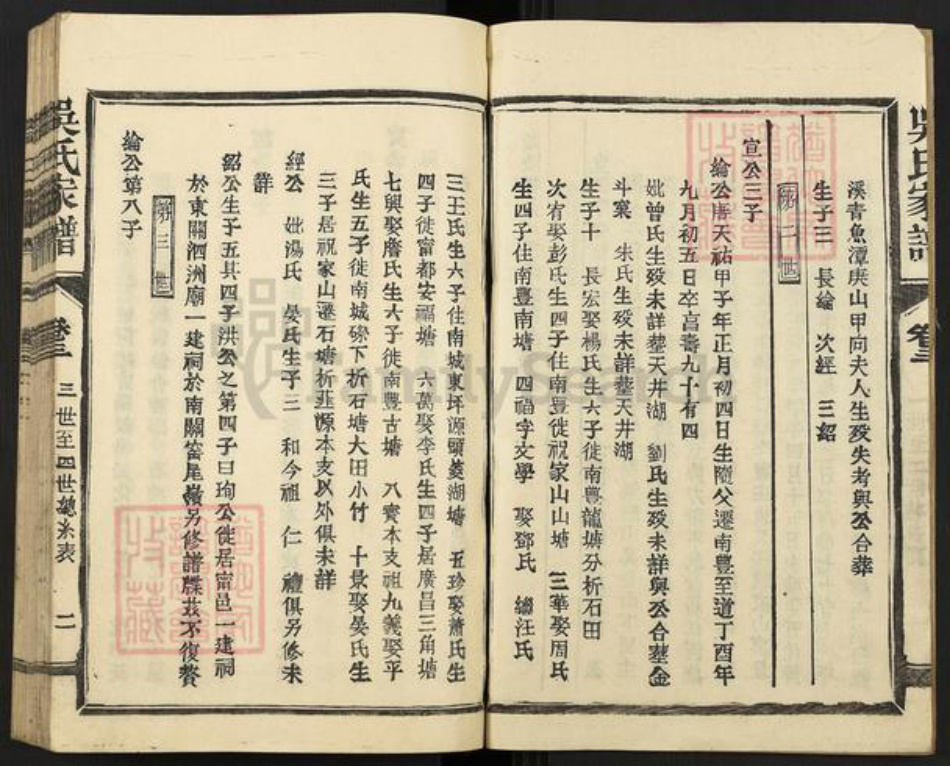 溪青魚潭庚山甲向夫人生歿失考與公合葬
生子三　長綸　次經　三紹
第二世
宣公三子
綸公唐天祐甲子年正月初四日生隨父遷南豐至道丁酉年
九月初五日卒享壽九十有四
妣曾氏生歿未詳塟天井湖　劉氏生歿未詳與公合塟金
斗窠　朱氏生歿未詳塟天井湖
生子十　長宏娶楊氏生六子徙南豐龍塘分析石田
次宥娶彭氏生四子住南豐徙祝家山山塘　三華娶周氏
生四子住南豐南塘　四福字文學　娶鄧氏　繼汪氏
三王氏生六子住南城東坪源頭菱湖塘　五珍娶蕭氏生
四子徙甯都安福塘　六萬娶李氏生四子居廣昌三角塘
七興娶詹氏生六子徙南豐古塘　八實本支祖九義娶平
氏生五子徙南城磜下析石塘大田小竹　十景娶晏氏生
三子居祝家山遷石塘析韮源本支以外俱未詳
經公　妣湯氏　晏氏生子三　和今祖　仁　禮俱另修未
詳
紹公生子五其四子洪公之第四子曰珣公徙居甯邑一建祠
於東關泗洲廟一建祠於南關窑尾嶺另修譜牒茲不復贅
第三世
綸公第八子
吳氏家譜
卷三
三世至四世總系表
二
吳氏家譜
卷三
FamilySearch